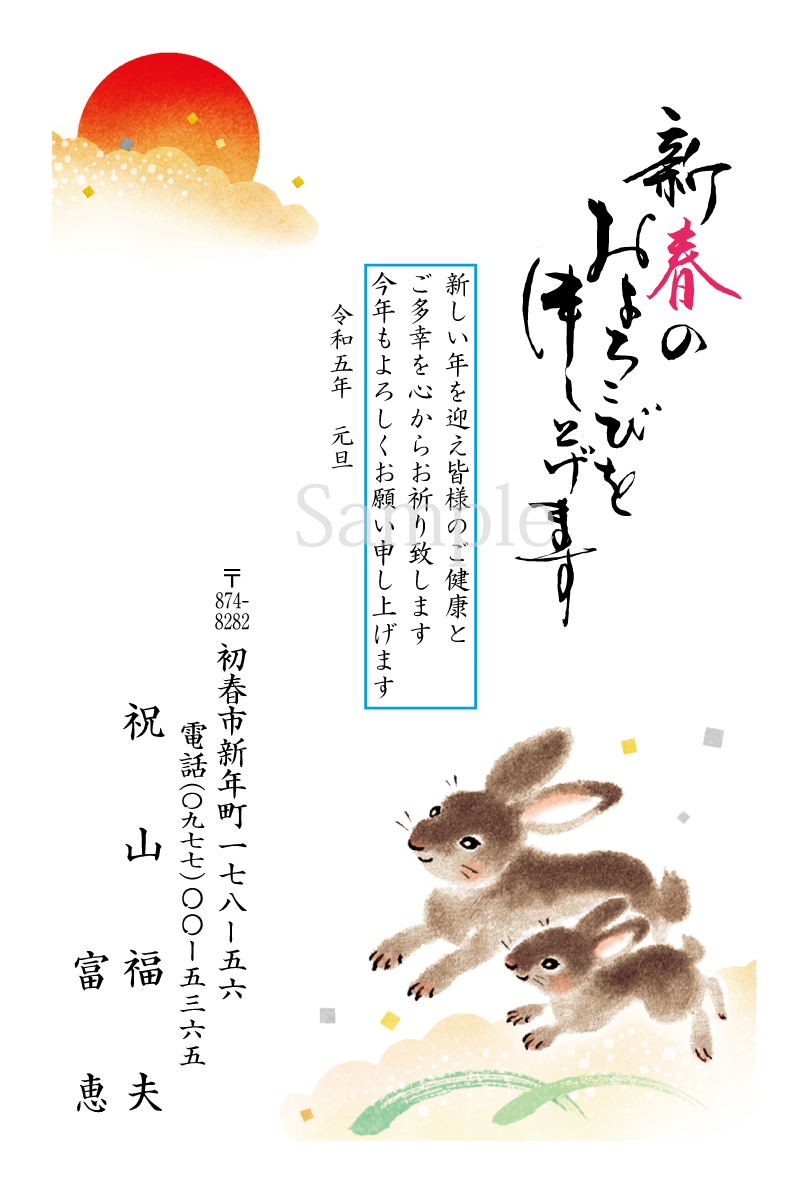 新春の
およろこびを
申し上げます
新しい年を迎え皆様のご健康と
ご多幸を心からお祈り致します
今年もよろしくお願い申し上げます
令和五年　元旦
Sample
〒874-8282
初春市新年町一七八ー五六
電話(〇九七七)〇〇ー五三六五
祝山福夫
富恵